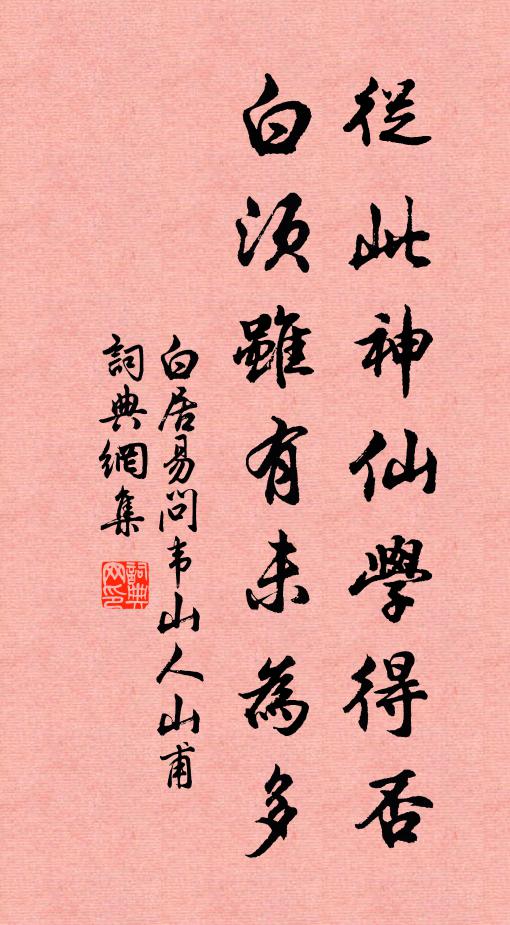 從此神仙學得否
白須雖有未為多
白居易問韦山人山甫
詞典網集
詞典
网印